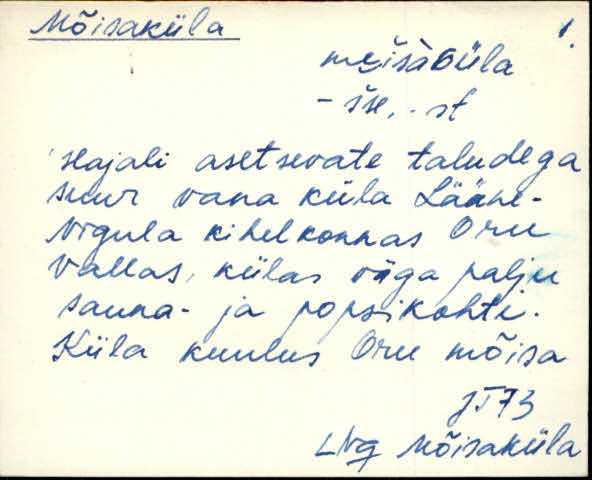 Mõisaküla
1.
mẹišàGüla
- šse, - st
Hajali asetsevate taludega
suur vana küla Lääne-
Nigula kihelkonnas Oru
vallas, külas väga palju
sauna- ja popsikohti.
Küla kuulus Oru mõisa
JT73
LNg Mõisaküla